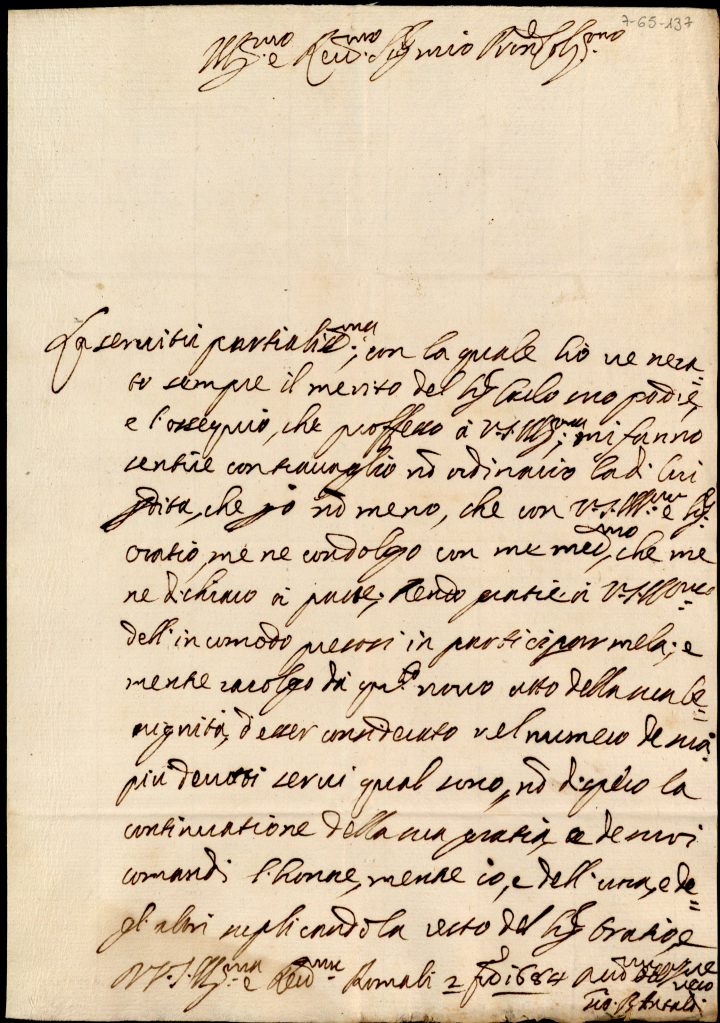 7-65-137
Ill.mo e Reu.mo Sig.r mio Pron Col.mo
La seruitù partialiss.ma, con la quale hò venera=
to sempre il merito del Sig.r Carlo suo padre,
e l'ossequio, che professo à V.S. Ill.ma, mi fanno
sentire con trauaglio nõ ordinario la di lui
pdita, che però nõ meno, che con V.S. Ill.ma e Sig.r
Oratio, me ne condolgo con me med.mo, che me
ne dichiaro à parte; Rendo gratie à V.S. Ill.ma
dell'incomodo presosi in participarmela; e
mentre racolgo da qu.sto nouo atto della sua be=
nignità, d'esser considerato nel numero de suoi
più deuoti serui qual sono, nõ dispero la
continuatione della sua gratia, e de suoi
comandi l'honore, mentre io, e dell'una, e de=
gl'altri suplicandola resto del Sig.r Oratio, e
D V.S. Ill.ma e Reu.ma Romali 2 1684